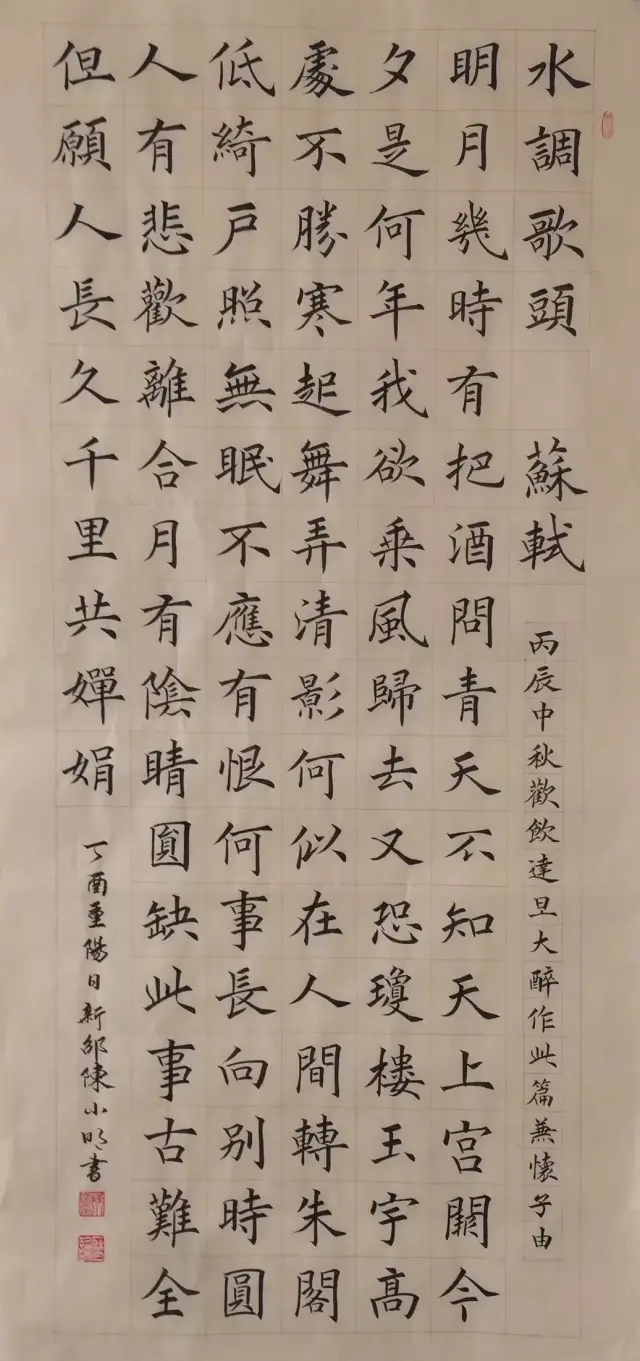 水調歌頭 蘇軾
丙辰中秋歡飲達旦大醉作此篇兼懷子由
明月幾時有把酒問青天不知天上宮闕今
夕是何年我欲乘風歸去又恐瓊樓玉宇高
處不勝寒起舞弄清影何似在人間轉朱閣
低綺戶照無眠不應有恨何事長向别時圓
人有悲歡離合月有陰晴圓缺此事古難全
但願人長久千里共嬋娟
丁酉重陽日新邵陳小明書